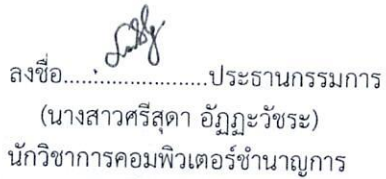 ลงชื่อ.......................ประธานกรรมการ
(นางสาวศรีสุดา อัฏฏะวัชระ)
นักวิชาการคอมพิวเตอร์ชำนาญการ